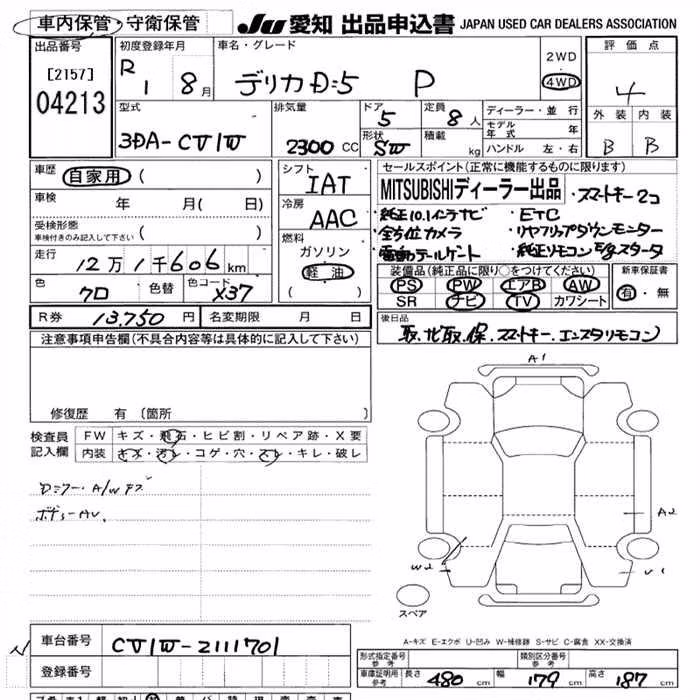 車内保管・守衛保管 JU 愛知 出品申込書 JAPAN USED CAR DEALERS ASSOCIATION
出品番号 初度登録年月 車名・グレード 2WD 4WD 評価点
[2157] R 1 8月 デリカD:5 P 4
04213 型式 排気量 ドア 5 定員 8人 ディーラー・並行 外装 内装
モデル年式 年
3DA-CV1W 2300 CC 形状 SW 積載 kg ハンドル 左・右 B B
車歴 自家用 ( ) シフト IAT セールスポイント(正常に機能するものに限ります)
車検 年 月( 日) 冷房 AAC MITSUBISHIディーラー出品 ・スマートキー2コ
受検形態 ・純正10.1インチナビ ・ETC
車検付きのみ記入して下さい ( ) 燃料 ・全方位カメラ ・リヤフリップダウンモニター
走行 12万1千606km ガソリン ・電動テールゲート ・純正リモコンE/gスタータ
軽油 装備品(純正品に限り○をつけてください) 新車保証書
色 クロ 色替 色コード X37 ( ) PS PW エアB AW 有・無
SR ナビ TV カワシート
R券 13,750円 名変期限 月 日 後日品
注意事項申告欄(不具合内容等は具体的に記入して下さい) 取.ナビ取.保.スマートキー.エンスタリモコン
修復歴 有 (箇所
A1
検査員 FW キズ・飛石・ヒビ割・リペア跡・X要
記入欄 内装 キズ・汚レ・コゲ・穴・スレ・キレ・破レ
ミラー・A/Wキズ
ボデーAU.
A2
W2 U1
スペア
車台番号 CV1W-2111701 A-キズ E-エクボ U-凹み W-補修跡 S-サビ C-腐食 XX-交換済
登録番号 形式指定番号 参考 類別区分番号 参考
車庫証明用 参考 長さ 480 cm 幅 179 cm 高さ 187 cm